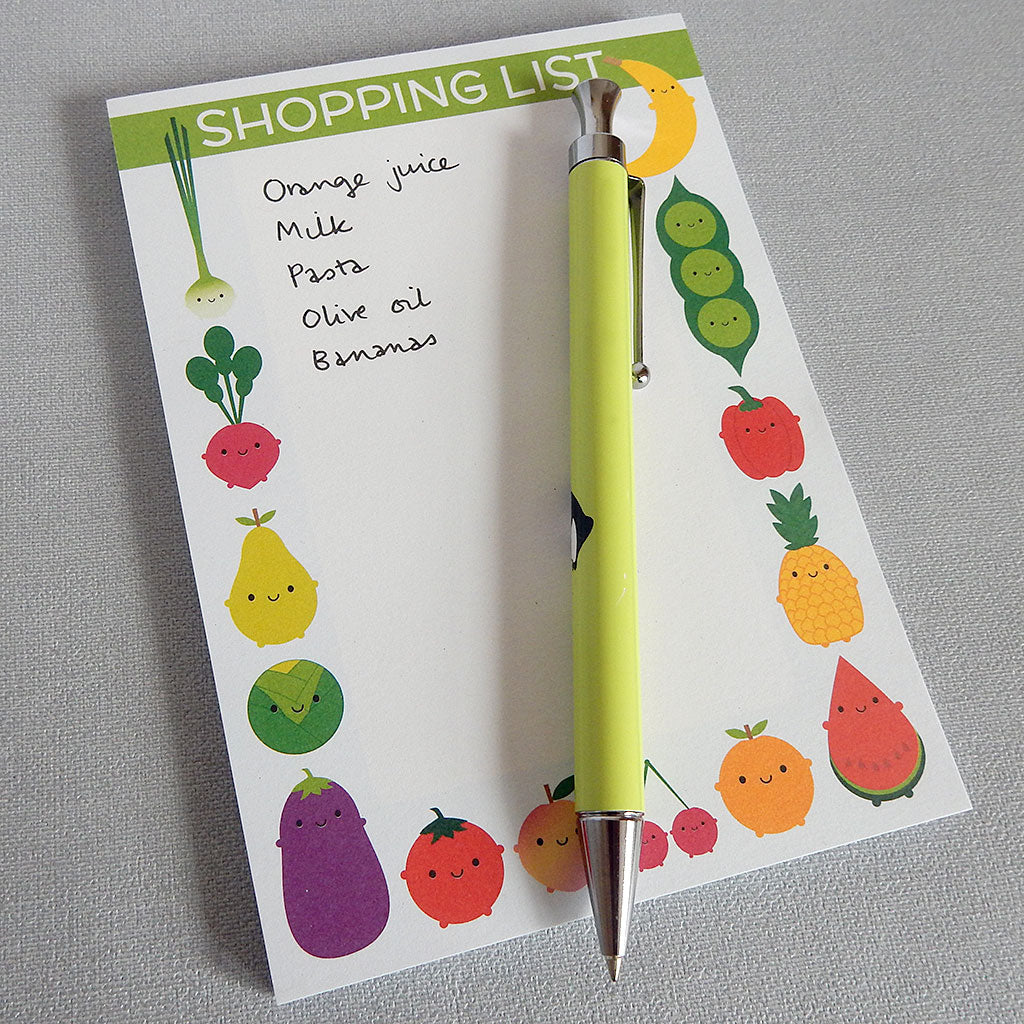 SHOPPING LIST
Orange juice
Milk
Pasta
Olive oil
Bananas